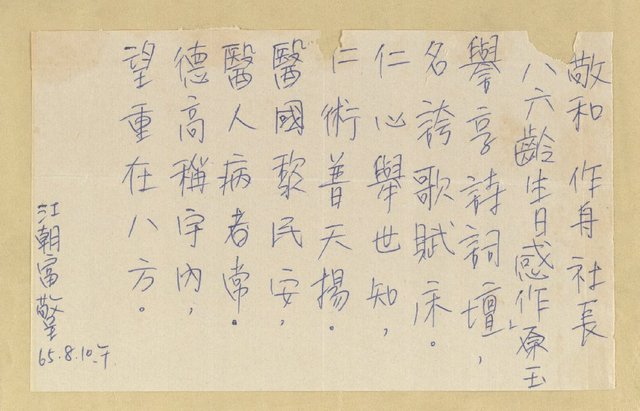 敬和 作舟社長
八六齡生日感作原玉
譽享詩詞壇，
名誇歌賦床。
仁心舉世知，
仁術普天揚。
醫國黎民安，
醫人病者常。
德高稱宇內，
望重在八方。
江朝富擎
65.8.10.午